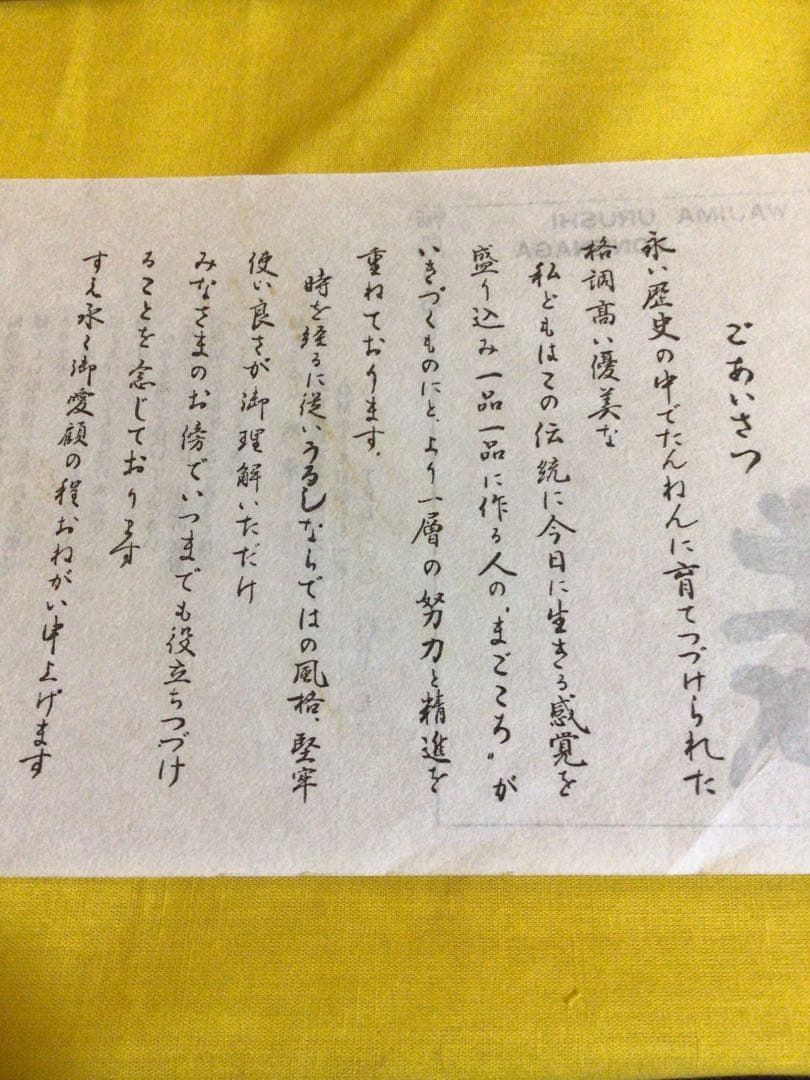 ごあいさつ
永い歴史の中でたんねんに育てつづけられた
格調高い優美な
私どもはこの伝統に今日に生きる感覚を
盛り込み一品一品に作る人の〝まごころ〟が
いきづくものにと、より一層の努力と精進を
重ねております。
時を経るに従いうるしならではの風格、堅牢
使い良さが御理解いただけ
みなさまのお傍でいつまでも役立ちつづけ
ることを念じております
すえ永く御愛顧の程おねがい申上げます
WAJIMA URUSHI